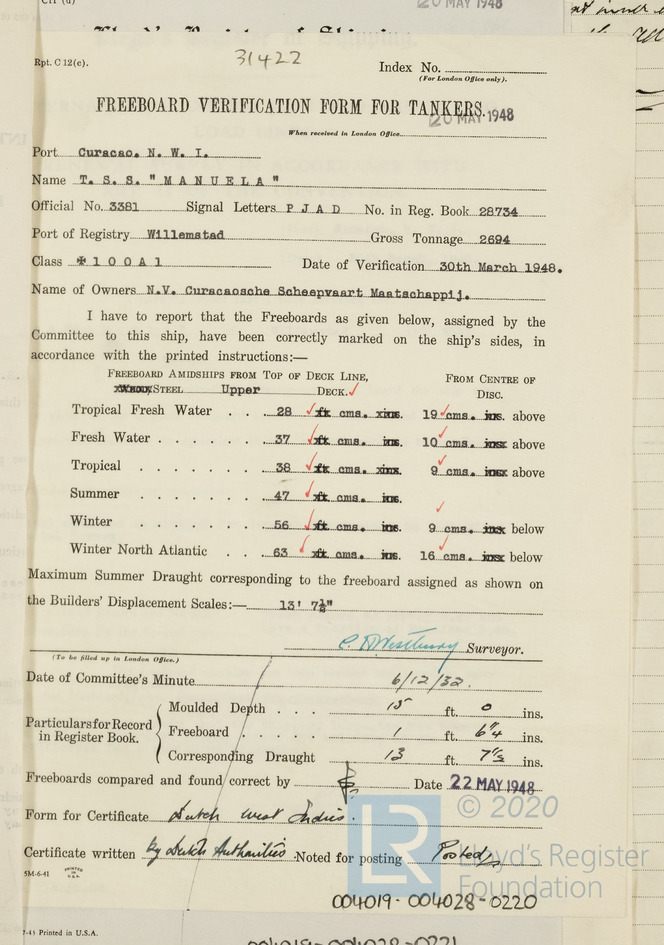 C11 (d)
20 MAY 1948
Rpt. C 12(c).
31422
Index No.
(For London Office only).
FREEBOARD VERIFICATION FORM FOR TANKERS.
20 MAY 1948
When received in London Office
Port Curacao. N. W. I.
Name T. S. S. " M A N U E L A "
Official No. 3381 Signal Letters P J A D No. in Reg. Book 28734
Port of Registry Willemstad Gross Tonnage 2694
Class ✠ 1 0 0 A 1 Date of Verification 30th March 1948.
Name of Owners N.V. Curacaosche Scheepvaart Maatschappij.
I have to report that the Freeboards as given below, assigned by the
Committee to this ship, have been correctly marked on the ship's sides, in
accordance with the printed instructions:—
FREEBOARD AMIDSHIPS FROM TOP OF DECK LINE, FROM CENTRE OF
STEEL Upper DECK. DISC.
Tropical Fresh Water . . 28 ft cms. ins. 19 cms. ins. above
Fresh Water . . . . . . 37 ft cms. ins. 10 cms. ins above
Tropical . . . . . . . 38 ft cms. ins. 9 cms. ins above
Summer . . . . . . . 47 ft cms. ins.
Winter . . . . . . . 56 ft cms. ins. 9 cms. ins below
Winter North Atlantic . . 63 ft cms. ins. 16 cms. ins below
Maximum Summer Draught corresponding to the freeboard assigned as shown on
the Builders' Displacement Scales:— 13' 7½"
C. H. Westbury Surveyor.
(To be filled up in London Office.)
Date of Committee's Minute 6/12/32.
Particulars for Record in Register Book.
Moulded Depth . . . 15 ft. 0 ins.
Freeboard . . . . . 1 ft. 6¼ ins.
Corresponding Draught 13 ft. 7½ ins.
Freeboards compared and found correct by Date 22 MAY 1948
Form for Certificate Dutch West Indies.
Certificate written by Dutch Authorities. Noted for posting Posted
5M-6-41
PRINTED IN U.S.A.
LR
© 2020
Lloyd's Register
Foundation
004019-004028-0220
7-41 Printed in U.S.A.
004019-004028-0221